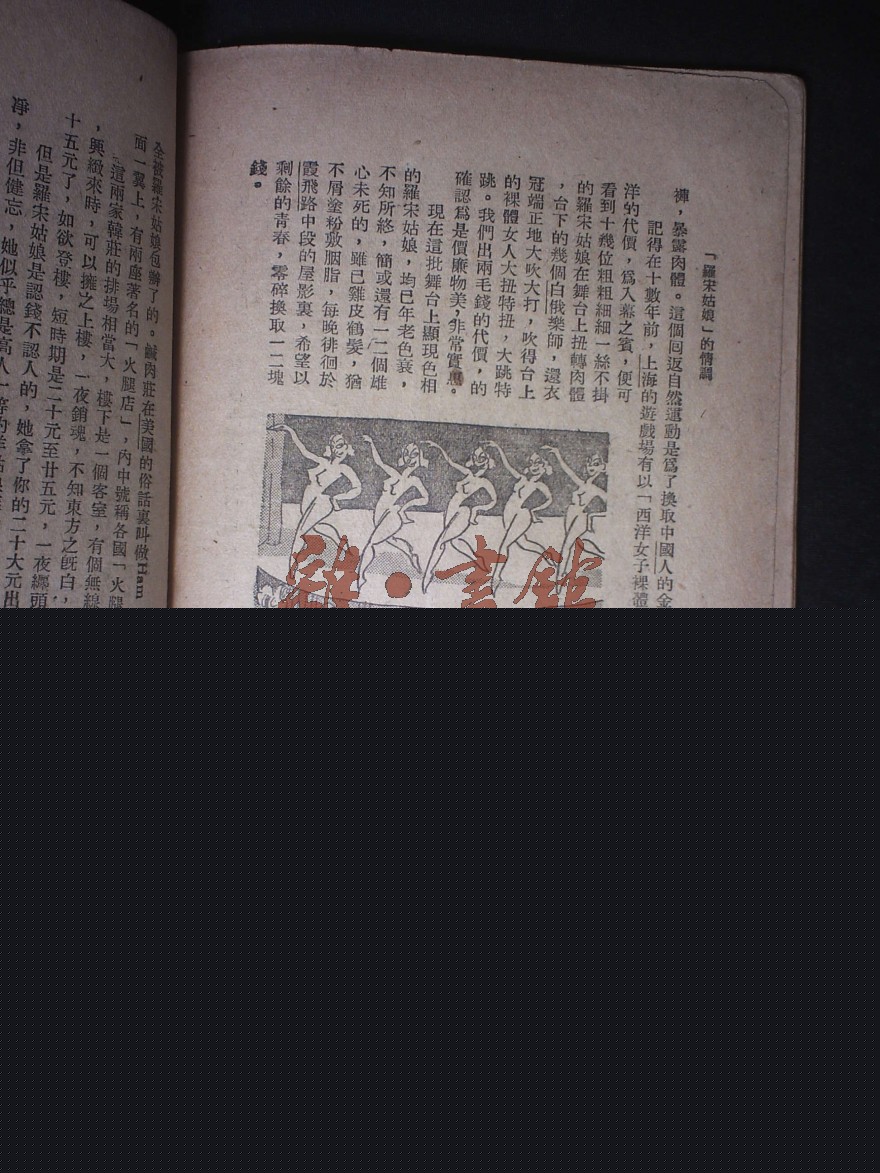 「羅宋姑娘」的情調
褲，暴露肉體。這個囘返自然運動是爲了換取中國人的金
記得在十數年前，上海的遊戲場有以「西洋女子裸體
洋的代價，爲入幕之賓，便可
看到十幾位粗粗細細一絲不掛
的羅宋姑娘在舞台上扭轉肉體
，台下的幾個白俄樂師，還衣
冠端正地大吹大打，吹得台上
的裸體女人大扭特扭，大跳特
跳。我們出兩毛錢的代價，的
確認爲是價廉物美，非常實惠。
現在這批舞台上顯現色相
的羅宋姑娘，均已年老色衰，
不知所終，簡或還有一二個雄
心未死的，雖已雞皮鶴髮，猶
不屑塗粉敷胭脂，每晚徘徊於
霞飛路中段的屋影裏，希望以
剩餘的青春，零碎換取一二塊
錢。
全被羅宋姑娘包辦了的。鹹肉莊在美國的俗話裏叫做Ham
面一翼上，有兩座著名的「火腿店」，內中號稱各國「火腿
這兩家韓莊的排場相當大，樓下是一個客室，有個無線
，興緻來時，可以擁之上樓，一夜銷魂，不知東方之旣白，
十五元了，如欲登樓，短時期是二十元至廿五元，一夜纏頭
但是羅宋姑娘是認錢不認人的，她拿了你的二十大元出
淨，非但健忘，她似乎總是高人一等的
雜·書館